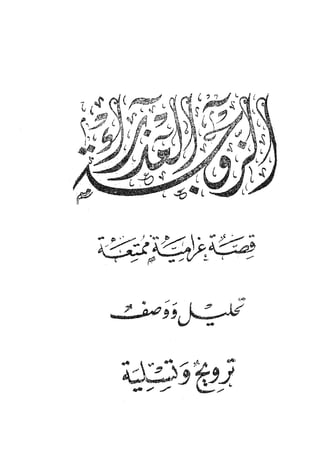 الزوجة العذراء
قصة غرامية ممتعة
تحليل ووصف
ترويح وتسلية